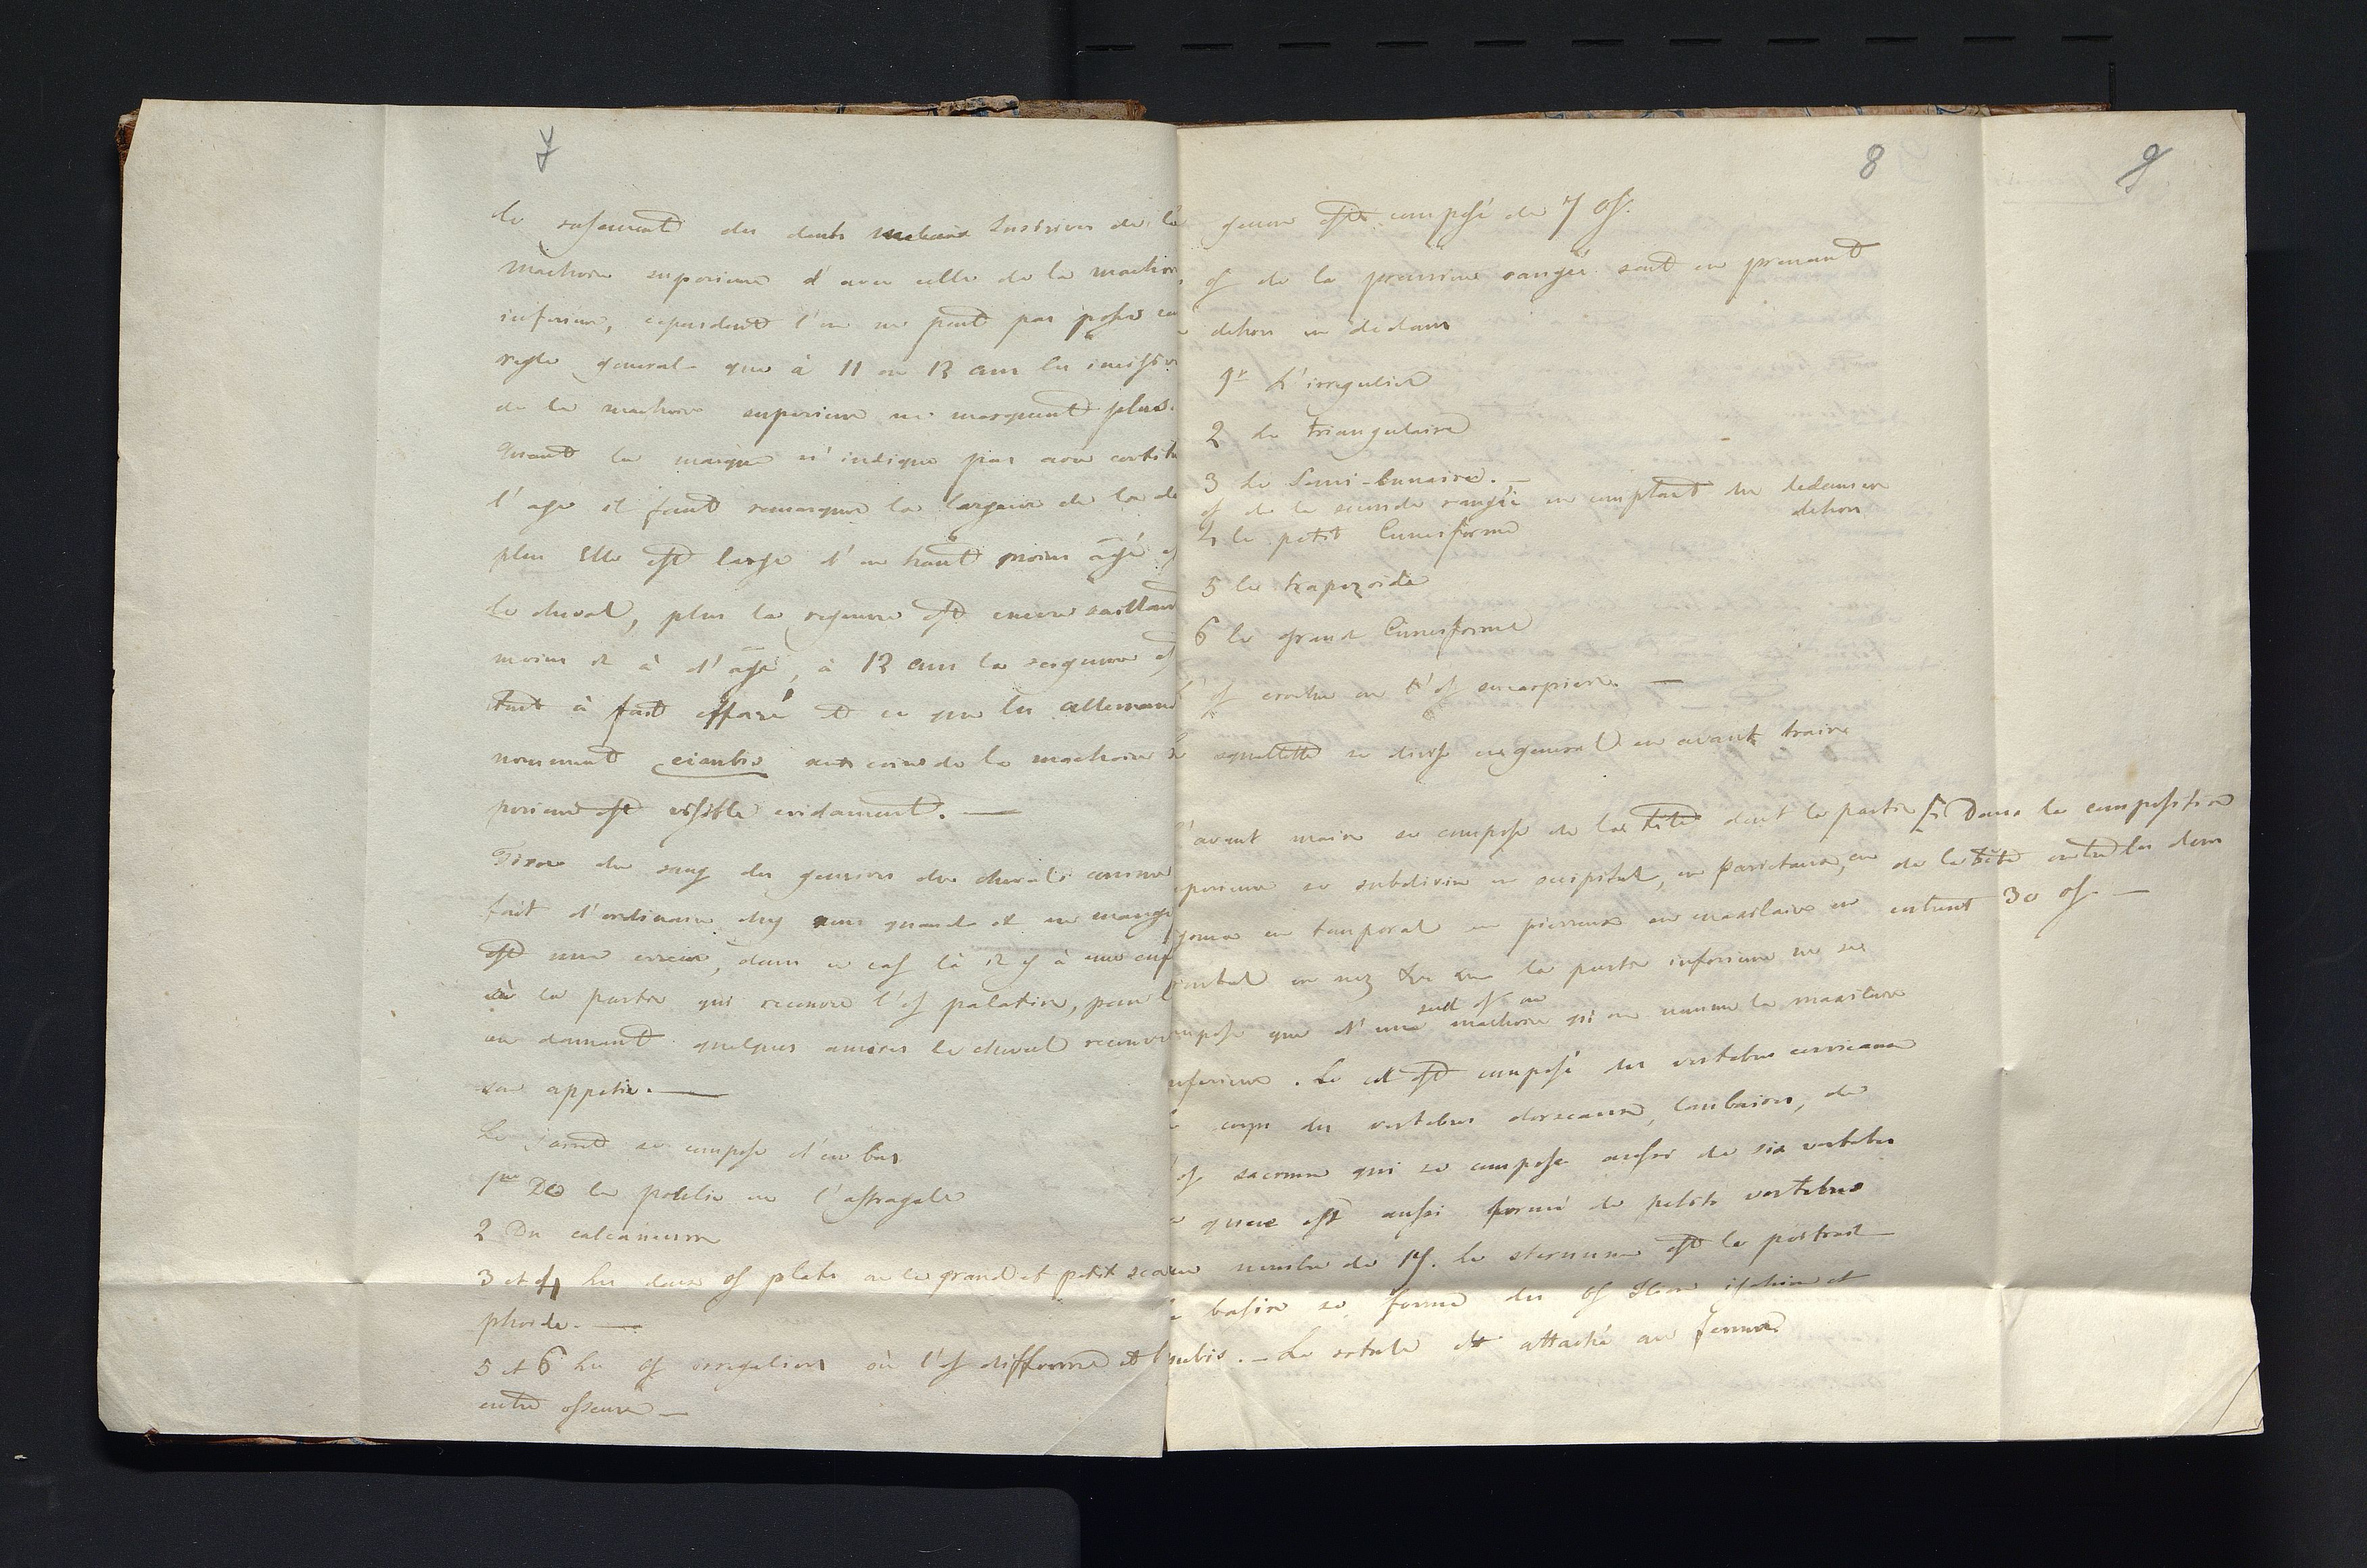 7
le rasement des dents incisives de la
machoire superieure d'avec celle de la machoir
inferieur, cependant l'on ne peut pas poser en
regle general que à 11 ou 12 ans les incisives
de la machoire superieure ne marquent plus.
Quant la marque n'indique pas avec certitu
l'age il faut remarquer la largeur de la de
plus Elle est large d'en haut moins agé es
le cheval, plus la est encore saillan
moins il à d'agé, à 12 ans la es
tout à fait effacé et ce que les allemand
nomment einbis aux coins de la machoire su
perieure est visible evidament. —
Tirer du sang des gencives des chevals comme
fait d'ordinaire chez nous quand il ne mange
est une erreur, dans ce cas là il y à une enf
à la partie qui recouvre l'os palatin, pour l
en donnant quelques amères le cheval recouvre
son appetit. —
Le Jarret se compose d'en bas
1re De la poulie ou l'astragale
2 Du calcaneum
3 et 4 Les deux os plats ou le grand et petit sca
phoide. —
5 et 6 Les os irreguliers où l'os difforme et l
entre osseux —
8
genou est composé de 7 os.
os de la premiere rangée sont en prenant
dehors en dedans
1r L'irregulier
2 Le triangulaire
3 Le Semi-lunaire. —
os de la seconde rangée en comptant du dedans en
dehors
4 le petit Cuneiforme
5 le trapezoide
6 le grand Cuneiforme
L'os crochu ou l'os —
Le squelette se divise en general en avant traine
l'avant maine se compose de la tête dont la partie
superieure se subdivise en occipital, en parietaux, en
en temporal en pierreux en maxilaire en
en nez la partie inferieure ne se
compose que d'une seul os ou machoire qu'on nomme la maxilaire
inferieure. Le col est composé des vertebres cervicaux
le corps des vertebres dorseaux, lombaires, de
l'os sacrum qui se compose aussi de six vertebres
la queue est aussi formé de petits vertebres
au nombre de 17. Le sternum est le poitrail
Le basin se forme des os Ileon ischion et
pubis. — La rotule est attaché au femur
9
Dans la composition
de la tête entre les dens
entrent 30 os. —